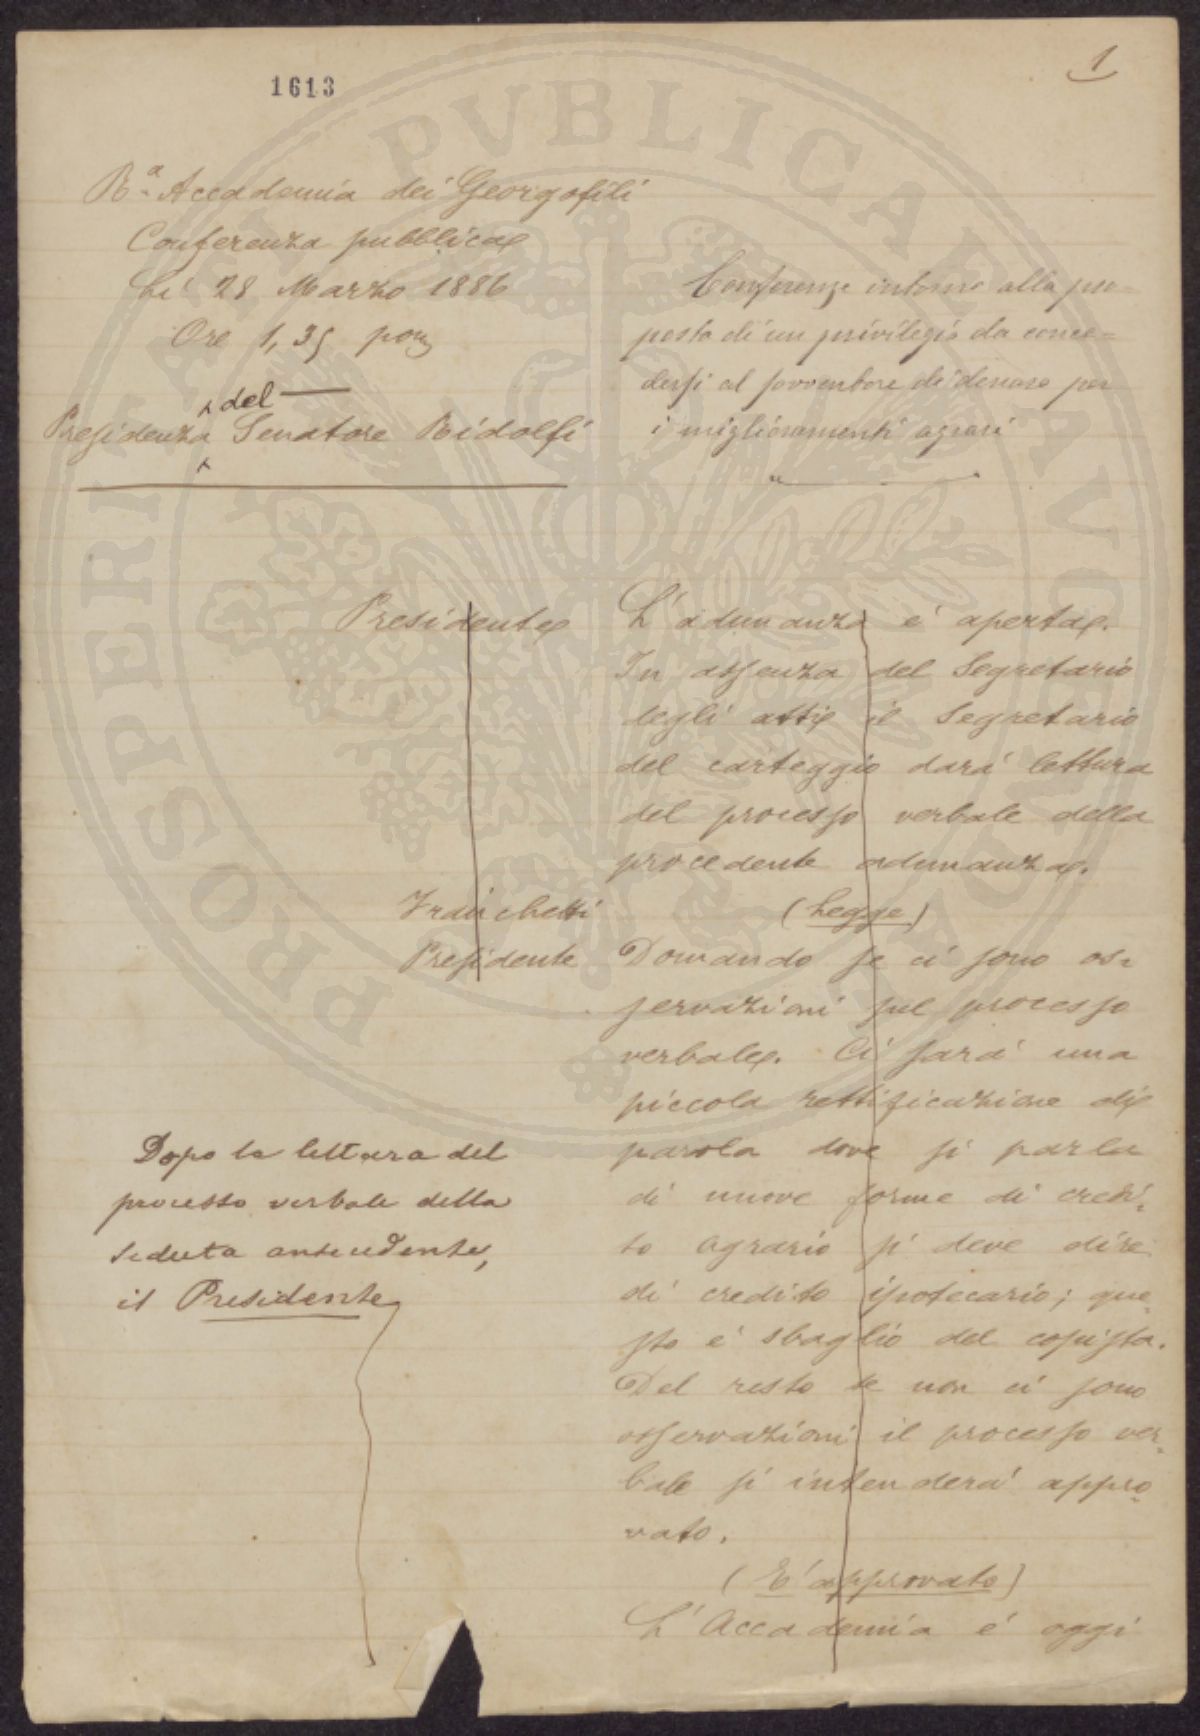 1613
1
R.ª Accademia dei Georgofili
Conferenza pubblica
Li 28 Marzo 1886
Ore 1,35 pom
del
Presidenza Senatore Ridolfi
Conferenze intorno alla pro=
posta di un privilegio da conce=
dersi al sovventore di denaro per
i miglioramenti agrari
Presidente
L'adunanza é aperta.
In assenza del Segretario
degli atti il Segretario
del carteggio dará lettura
del processo verbale della
precedente adunanza.
Franchetti
(Legge)
Presidente
Domando se ci sono os=
servazioni sul processo
verbale. Ci sará una
piccola rettificazione di
parola dove si parla
di nuove forme di credi=
to agrario si deve dire
di credito ipotecario; que=
sto é sbaglio del copista.
Del resto se non ci sono
osservazioni il processo ver=
bale si intenderá appro=
vato.
(É approvato)
L'Accademia é oggi
Dopo la lettura del
processo verbale della
seduta antecedente,
il Presidente
PROSPERITATI PUBLICAE AUGENDAE